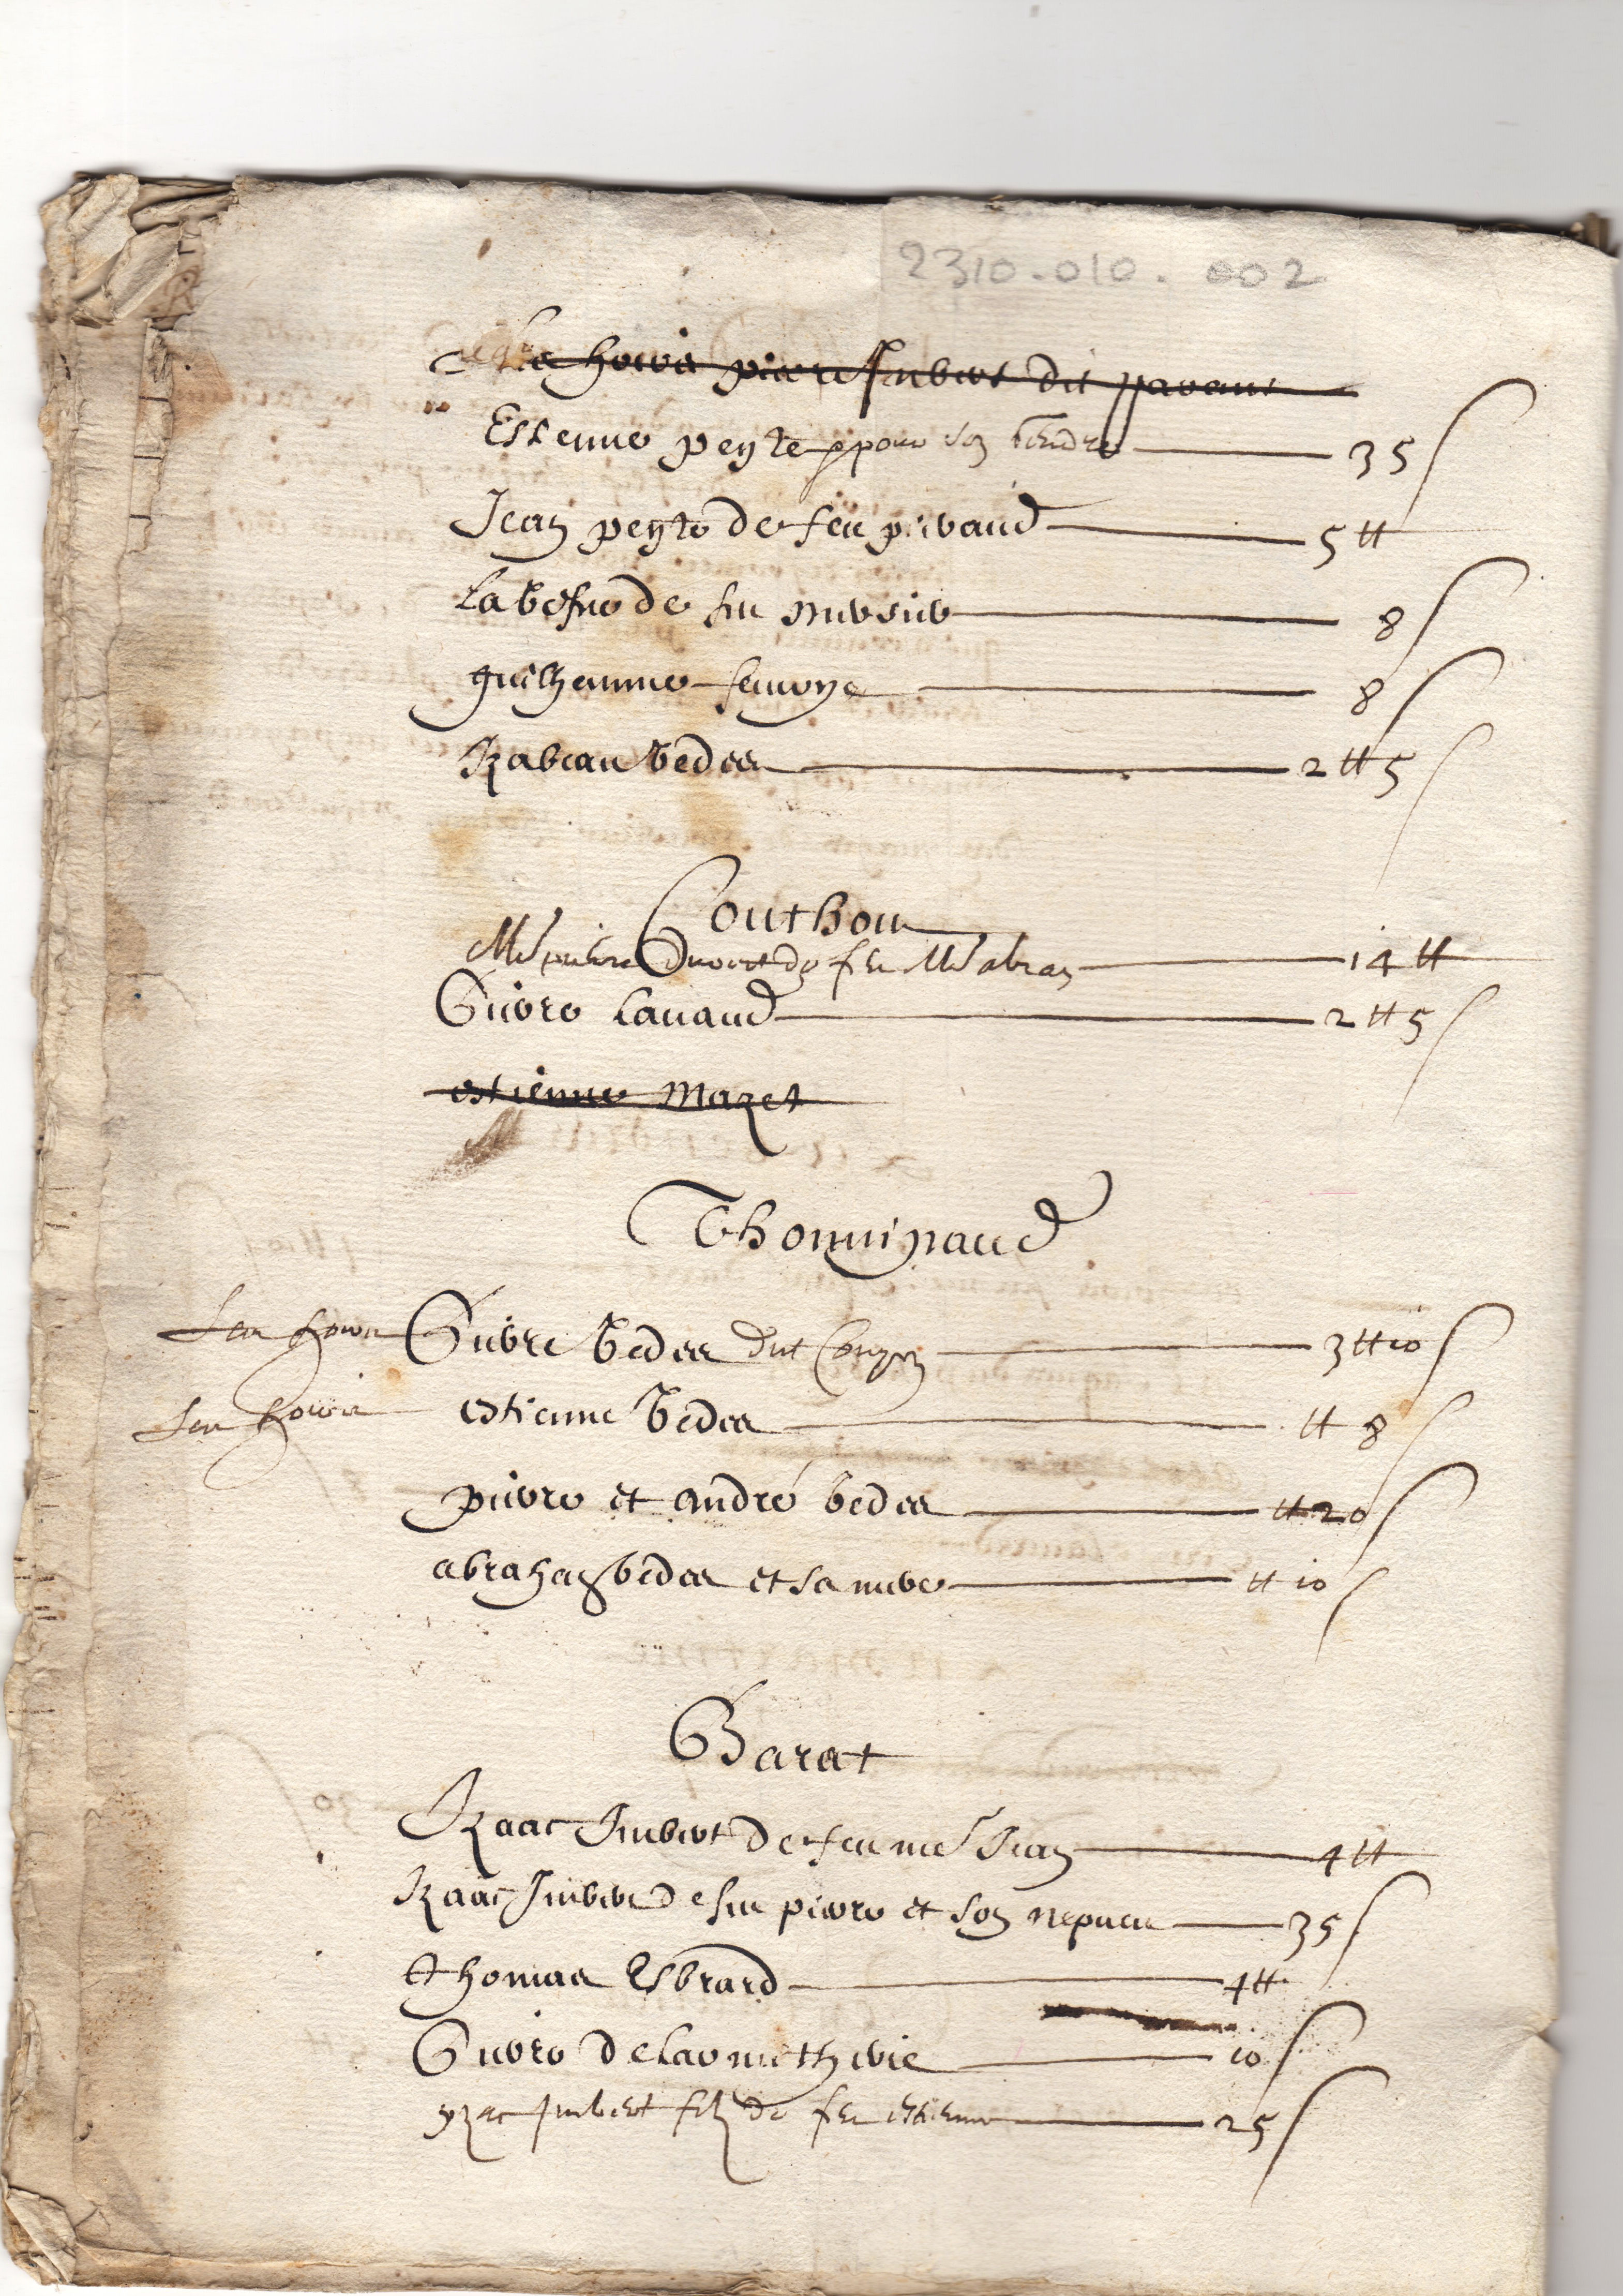 2310-010-002
Les hoirs pierre Imbert dit
Estienne peyre pour son gendre 35 s
Jean peyre de feu privaud 5 ₶
La vefue de feu 8 s
guilhaume 8 s
Rabeau vedes 2 ₶ 5 s
Couthou
Me pierre de feu Me abran 14 ₶
Pierre Lavaud 2 ₶ 5 s
estienne Mazet
Thominaud
Ses hoirs Pierre vedes dit 3 ₶ 10 s
Ses hoirs estienne vedes ₶ 8 s
pierre et andré vedes ₶ 20 s
abraham vedes et sa mere ₶ 10 s
Barat
Izaac Imbert de feu me Jean 4 ₶
Izaac Imbert de feu pierre et son nepueu 35 s
thomas Esbrard 4 ₶
Pierre 10 s
yzac Imbert filz de feu estienne 25 s